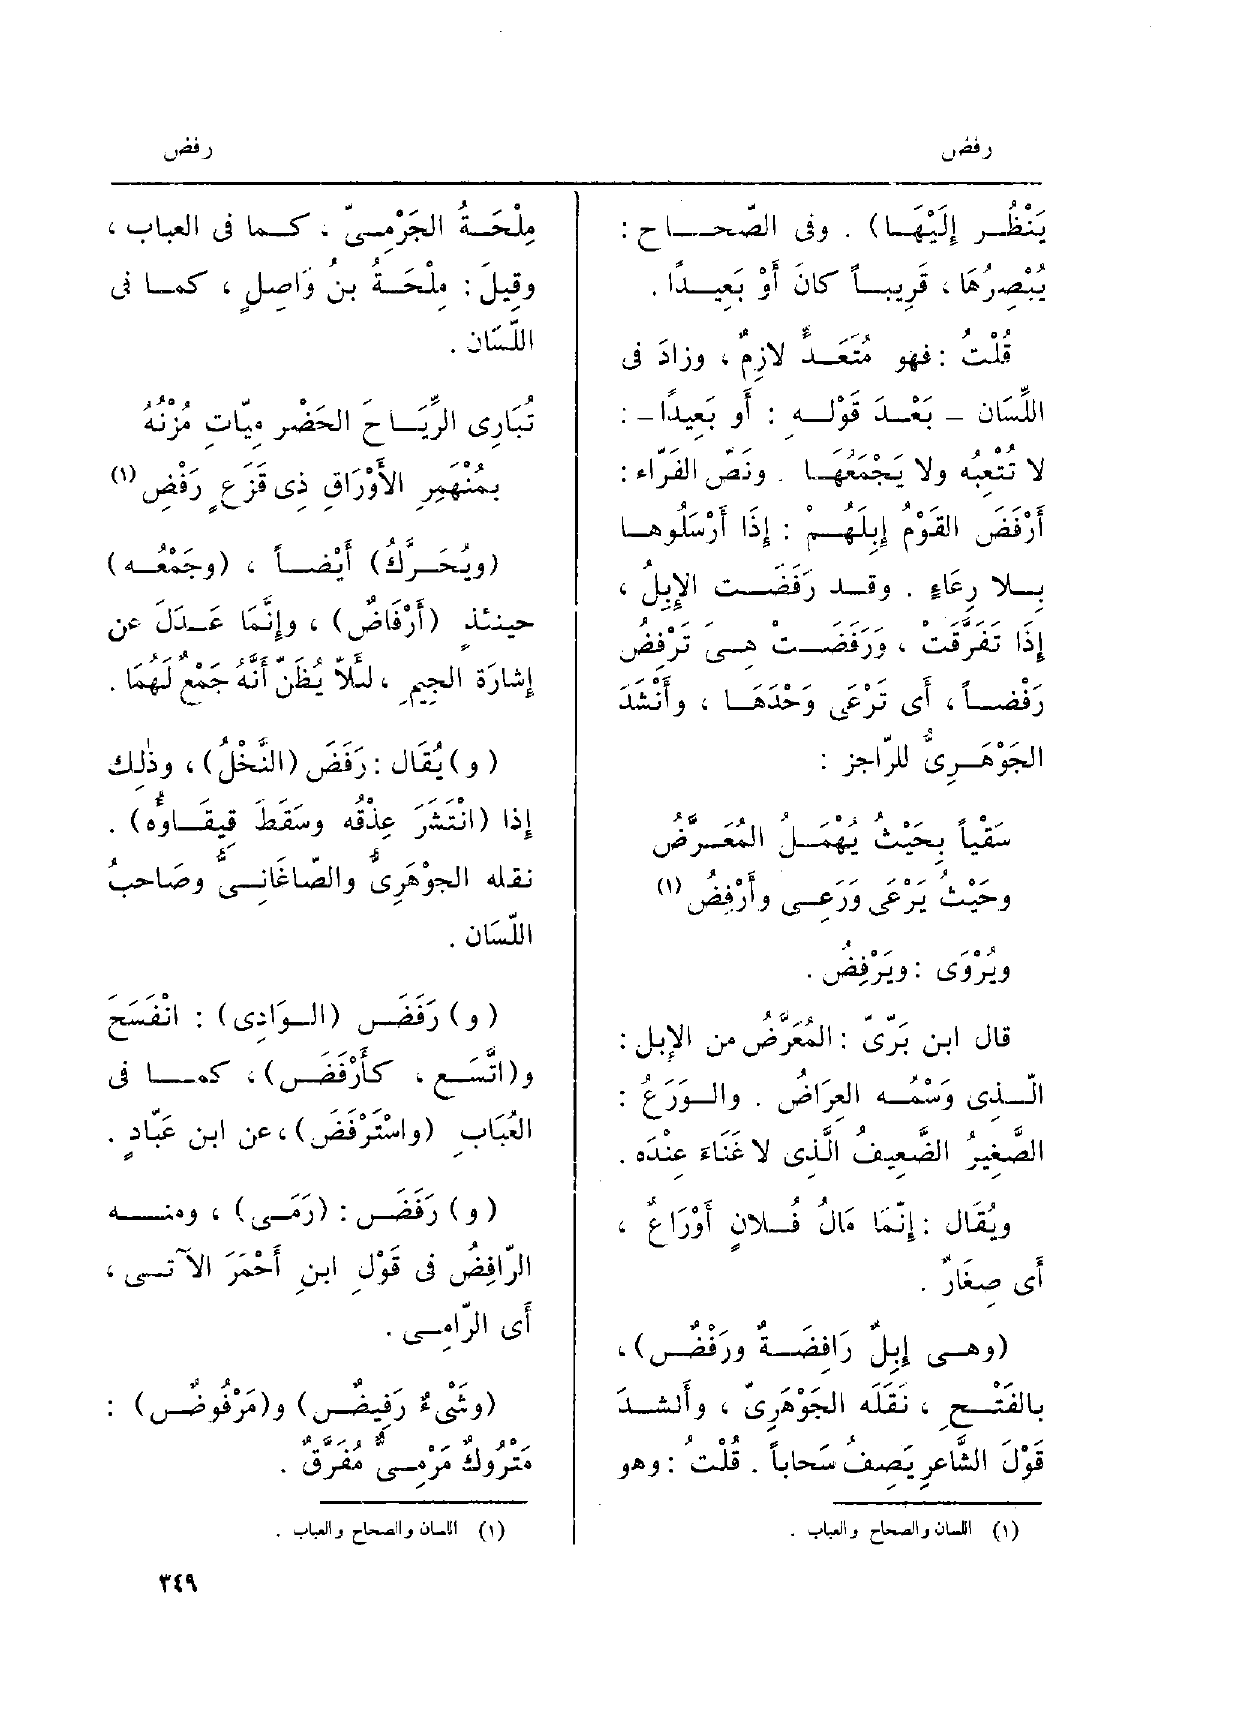 رفض
رفض
يَنْظُر إِلَيْهَا) . وفى الصّحاح :
يُبْصِرُهَا ، قَرِيباً كانَ أَوْ بَعِيدًا .
قُلْتُ : فهو مُتَعَدٍّ لازِمٌ ، وزادَ فى
اللِّسَان – بَعْدَ قَوْلِه : أَو بَعِيدًا – :
لا تُتْعِبُه ولا يَجْمَعُهَا . ونَصّ الفَرّاء :
أَرْفَضَ القَوْمُ إِبِلَهُمْ : إِذَا أَرْسَلُوها
بِلا رِعَاءٍ . وقد رَفَضَت الإِبِلُ ،
إِذَا تَفَرَّقَت ، وَرَفَضَت هِى تَرْفِضُ
رَفْضاً ، أَى تَرْعَى وَحْدَهَا ، وأَنْشَدَ
الجَوْهَرِىُّ للرّاجز :
سَقْياً بِحَيْثُ يُهْمَلُ المُعَرَّضُ
وحَيْثُ يَرْعَى وَرَعِى وأَرْفِضُ (١)
ويُرْوَى : ويَرْفِضُ .
قال ابن بَرّىّ : المُعَرَّضُ من الإِبل :
الّذِى وَسْمُه العِرَاضُ . والوَرَعُ :
الصَّغِيرُ الضَّعِيفُ الَّذِى لا غَنَاءَ عِنْدَه .
ويُقَال : إِنَّمَا مَالُ فُلانٍ أَوْرَاعٌ ،
أَى صِغَارٌ .
(وهِى إِبِلٌ رَافِضَةٌ ورَفْضٌ) ،
بالفَتْحِ ، نَقَلَه الجَوْهَرِىّ ، وأَنشدَ
قَوْلَ الشَّاعِرِ يَصِفُ سَحَاباً . قُلْتُ : وهو
(١) اللسان والصحاح والعباب .
مِلْحَةُ الجَرْمِىّ ، كما فى العباب ،
وقِيلَ : مِلْحَةُ بنُ وَاصِلٍ ، كما فى
اللِّسَان .
تُبَارِى الرِّيَاحَ الحَضْرمِيّاتِ مُزْنُهُ
بمُنْهَمِرِ الأَوْرَاقِ ذِى قَزَعٍ رَفْضِ (١)
(ويُحَرَّكُ) أَيْضاً ، (وجَمْعُه)
حينئذٍ (أَرْفَاضٌ) ، وإِنَّمَا عَدَلَ عن
إِشارَة الجِيمِ ، لئَلاّ يُظَنّ أَنَّهُ جَمْعٌ لَهُمَا .
(و) يُقَال : رَفَضَ (النَّخْلُ) ، وذٰلِك
إِذا (انْتَشَرَ عِذْقُه وسَقَطَ قِيقَاؤُه) .
نقله الجَوْهَرِىُّ والصّاغَانِىُّ وصَاحبُ
اللِّسَان .
(و) رَفَضَ (الوَادِى) : انْفَسَحَ
و(اتَّسَع ، كأَرْفَضَ) ، كما فى
العُبَابِ (واسْتَرْفَضَ) ، عن ابن عَبّادٍ .
(و) رَفَضَ : (رَمَى) ، ومنه
الرّافِضُ فى قَوْلِ ابنِ أَحْمَرَ الآتى ،
أَى الرّامِى .
(وشَىْءٌ رَفِيضٌ) و(مَرْفُوضٌ) :
مَتْرُوكٌ مَرْمِىٌّ مُفَرَّقٌ .
(١) اللسان والصحاح والعباب .
٣٤٩